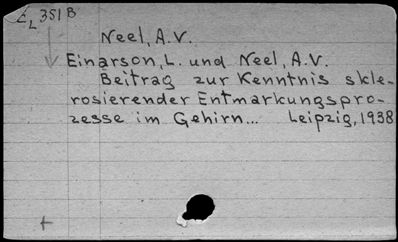 EL 351 B
Neel, A.V.
Einarson, L. und Neel, A.V.
Beitrag zur Kenntnis skle-
rosierender Entmarkungspro-
zesse im Gehirn... Leipzig, 1938